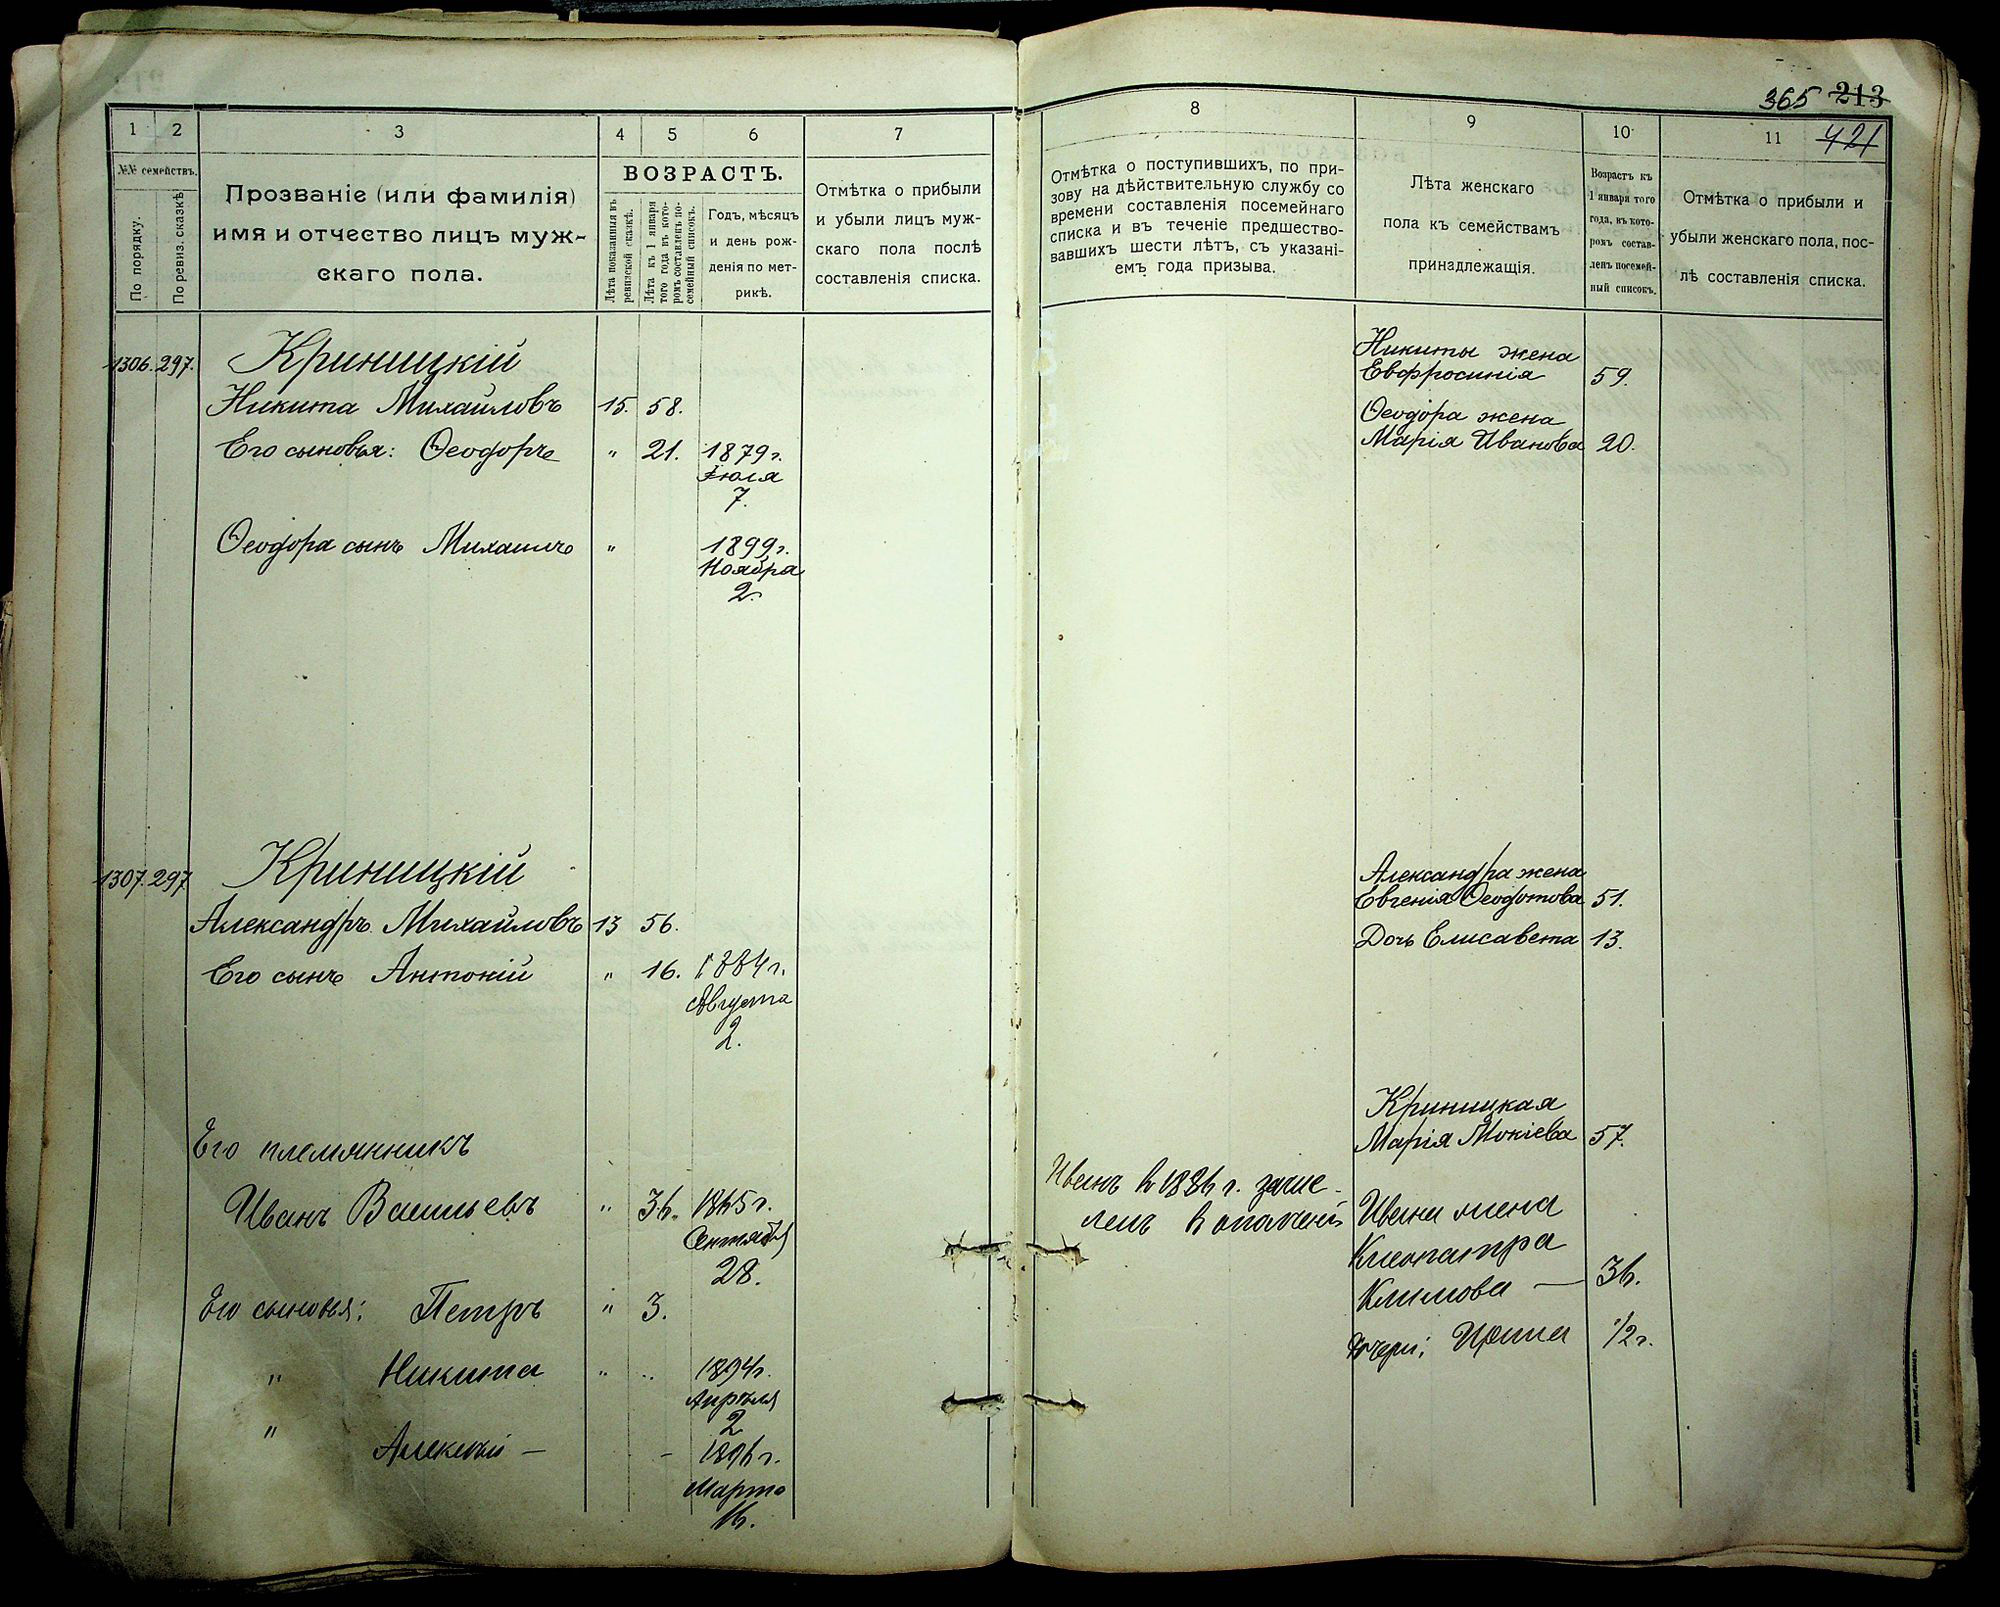 365 213
421
1 2 3 4 5 6 7
№№ семействъ.
По порядку.
По ревиз. сказкѣ
Прозваніе (или фамилія)
имя и отчество лицъ муж-
скаго пола.
ВОЗРАСТЪ.
Лѣта показанныя въ
ревизской сказкѣ.
Лѣта къ 1 января
того года въ кото-
ромъ составлекъ по-
семейный списокъ.
Годъ, мѣсяцъ
и день рож-
денія по мет-
рикѣ.
Отмѣтка о прибыли
и убыли лицъ муж-
скаго пола послѣ
составленія списка.
1306. 297. Криницкій
Никита Михайловъ 15. 58.
Его сыновья: Ѳеодоръ " 21. 1879 г.
Іюля
7.
Ѳеодора сынъ Михаилъ " 1899 г.
Ноября
2.
1307. 297 Криницкій
Александръ Михайловъ 13 56.
Его сынъ Антоній " 16. 1884 г.
Августа
2.
Его племянникъ
Иванъ Васильевъ " 36. 1865 г.
Сентября
28.
Его сыновья: Петръ " 3.
" Никита " .. 1894 г.
Апрѣля
2
" Алексѣй — - 1896 г.
Марта
16.
8 9 10 11
Отмѣтка о поступившихъ, по при-
зову на дѣйствительную службу со
времени составленія посемейнаго
списка и въ теченіе предшество-
вавшихъ шести лѣтъ, съ указані-
емъ года призыва.
Лѣта женскаго
пола къ семействамъ
принадлежащія.
Возрастъ къ
1 января того
года, въ кото-
ромъ состав-
ленъ посемей-
ный списокъ.
Отмѣтка о прибыли и
убыли женскаго пола, пос-
лѣ составленія списка.
Никиты жена
Евфросинія 59.
Ѳеодора жена
Марія Иванова 20.
Александра жена
Евгенія Ѳеодотова 51.
Дочь Елисавета 13.
Криницкая
Марія Мокіева 57.
Иванъ в 1886 г. зачис-
ленъ в ополченіе
Ивана жена
Клеопатра
Климова — 36.
Дочери: 1/2 г.